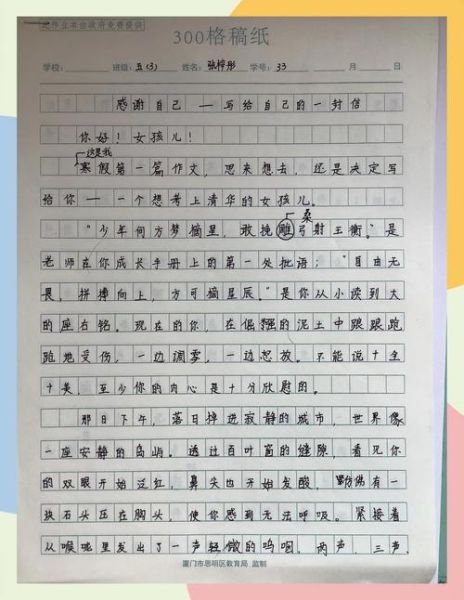 此作业本由政府免费提供
300格稿纸
学校: 班级: 五(3) 姓名: 张梓彤 学号: 33 月 日
感谢自己——写给自己的一封信
你好!女孩儿!
这是我
寒假第一篇作文,思来想去,还是决定写
给你——一个想考上清华的女孩儿。
桑
"少年何方梦摘星,敢挽雕弓射玉衡。"是
老师在你成长手册上的第一处批语;"自由无
畏,拼搏向上,方可摘星辰。"是你从小读到大
的座右铭。现在的你,在倔强的泥土中踉踉跄
跄地受伤,一边凋零,一边怒放。不能说十全
十美,至少你的内心是十分欣慰的。
那日下午,落日掉进寂静的城市,世界像
一座安静的岛屿。透过百叶窗的缝隙,看见你
的双眼开始泛红,鼻尖也开始发酸,仿佛有一
块石头压在胸头,使你感到无法呼吸。紧接着
从喉咙里发出了一声轻微的呜咽,两声,三声
厦门市思明区教育局 监制